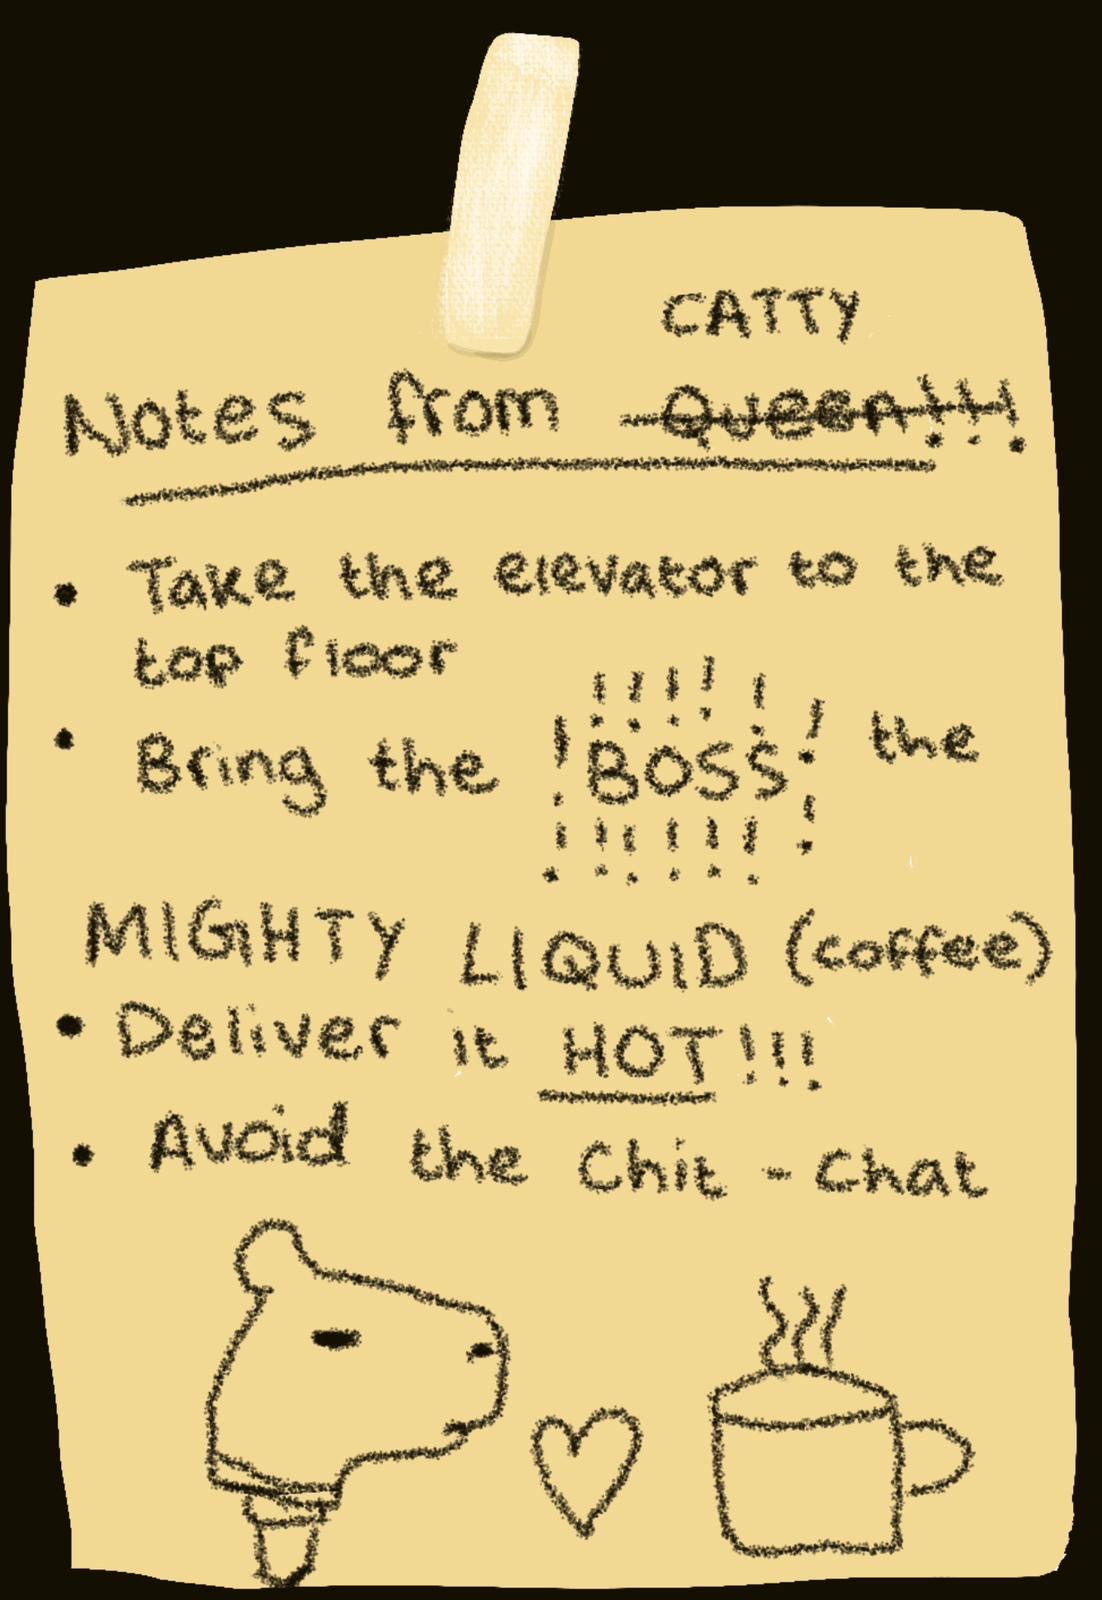 CATTY
Notes from Queen!!!
• Take the elevator to the
top floor
!!!!!
• Bring the ! BOSS ! the
!!!!!!!
MIGHTY LIQUID (coffee)
• Deliver it HOT!!!
• Avoid the Chit - Chat